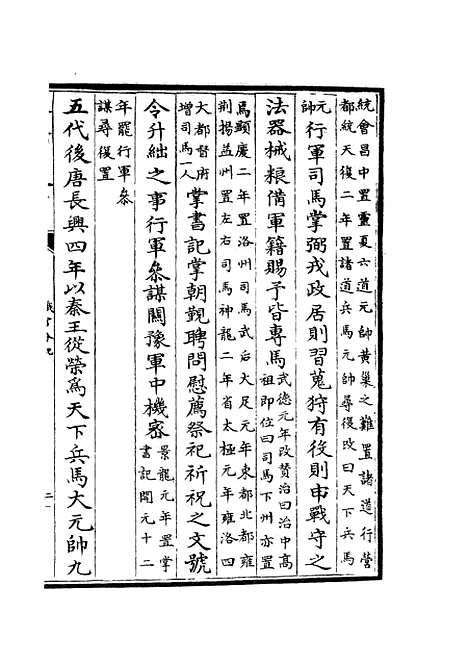 統會昌中置靈夏六道元帥黃巢之難置諸道行營
都統天復二年置諸道兵馬元帥尋復改曰天下兵馬
元帥
行軍司馬掌弼戎政居則習蒐狩有役則申戰守之
法器械粮備軍籍賜予皆專焉
武德元年改贊治曰治中高
祖即位曰司馬下州亦置
焉顯慶二年置洛州司馬武后大足元年東都北都雍
荆揚益州置左右司馬神龍二年省太極元年雍洛四
大都督府
增司馬一人
掌書記掌朝覲聘問慰薦祭祀祈祝之文號
令升絀之事行軍叅謀關豫軍中機密
景龍元年置掌
書記開元十二
年罷行軍叅
謀尋復置
五代後唐長興四年以秦王從榮為天下兵馬大元帥九